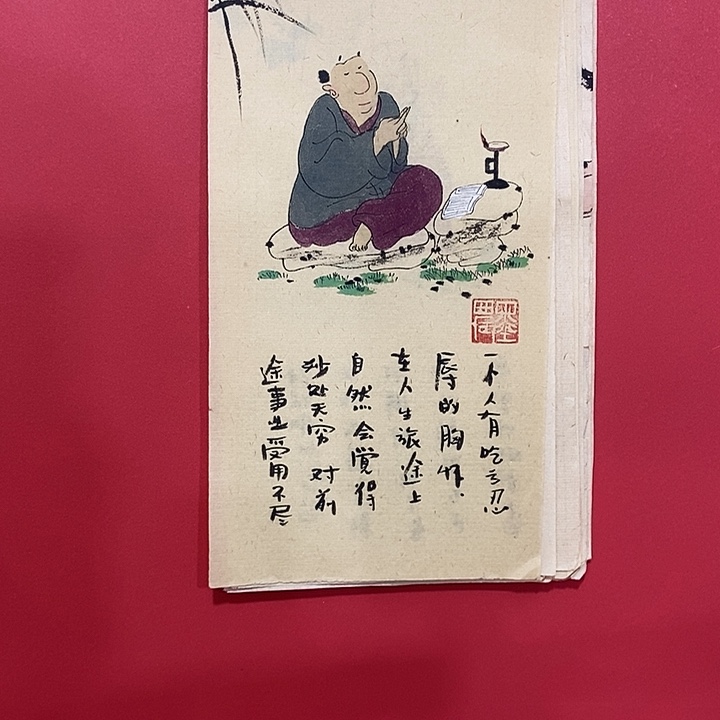 一个人有吃亏忍
辱的胸怀.
在人生旅途上
自然会覺得
妙处无穷 对前
途事业受用不尽